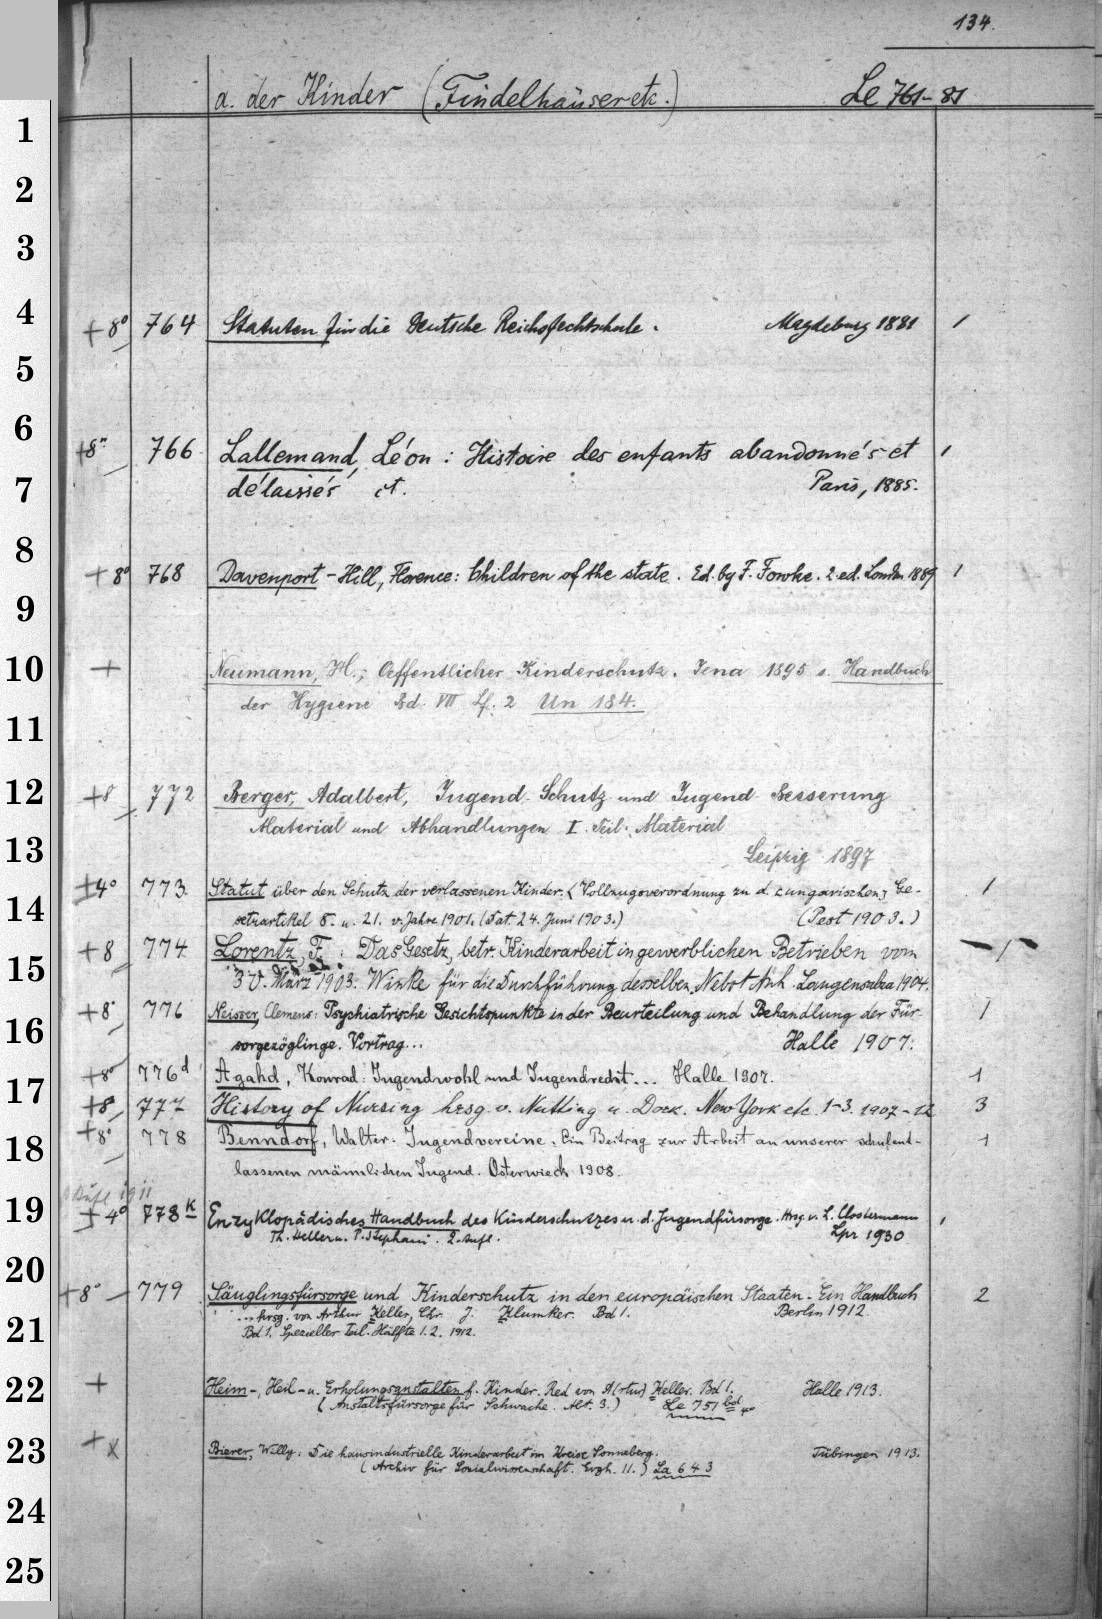 134.
a. der Kinder (Findelhäuser etc.) Le 761-81
1
2
3
4
+ 8° 764 Statuten für die Deutsche Reichsfechtschule. Magdeburg 1881 1
5
6
+ 8° 766 Lallemand, Léon: Histoire des enfants abandonnés et 1
7
délaissés ct. Paris, 1885.
8
+ 8° 768 Davenport-Hill, Florence: Children of the state. Ed. by F. Fowke. 2. ed. London 1889 1
9
10
+ Neumann, H.; Oeffentlicher Kinderschutz. Jena 1895 s. Handbuch
der Hygiene Bd. VII Lf. 2 Un 184.
11
12
+ 8 772 Berger, Adalbert, Jugend-Schutz und Jugend-Besserung
Material und Abhandlungen I. Teil: Material
13
Leipzig 1897
+ 4° 773 Statut über den Schutz der verlassenen Kinder. (Vollzugsverordnung zu d. [ungarischen] Ge- 1
14
setzartikel 8. u. 21. v. Jahre 1901. (Dat. 24. Juni 1903.) (Pest 1903.)
+ 8 774 Lorentz, F.: Das Gesetz, betr. Kinderarbeit in gewerblichen Betrieben vom 1
15
30. März 1903. Winke für die Durchführung desselben. Nebst Anh. Langensalza 1904.
+ 8° 776 Neisser, Clemens: Psychiatrische Gesichtspunkte in der Beurteilung und Behandlung der Für- 1
16
sorgezöglinge. Vortrag... Halle 1907.
+ 8° 776d Agahd, Konrad: Jugendwohl und Jugendrecht... Halle 1907. 1
17
+ 8° 777 History of Nursing hrsg. v. Nutting u. Dock. New York etc. 1-3. 1907-12 3
+ 8° 778 Benndorf, Walter: Jugendvereine. Ein Beitrag zur Arbeit an unserer schulent- 1
18
lassenen männlichen Jugend. Osterwieck 1908.
Aufl. 1911
19
+ 4° 778k Enzyklopädisches Handbuch des Kinderschutzes u. d. Jugendfürsorge. Hrsg. v. L. Clostermann 1
Th. Heller u. P. Stephani. 2. Aufl. Lpz 1930
20
+ 8° 779 Säuglingsfürsorge und Kinderschutz in den europäischen Staaten. Ein Handbuch 2
... hrsg. von Arthur Keller, Chr. J. Klumker. Bd 1. Berlin 1912
21
Bd 1. Spezieller Teil. Hälfte 1. 2. 1912.
22
+ Heim-, Heil- u. Erholungsanstalten f. Kinder. Red von A[rtur] Keller. Bd 1. Halle 1913.
(Anstaltsfürsorge für Schwache. Abt. 3.) Le 751 bd
23
+ x Bierer, Willy: Die hausindustrielle Kinderarbeit im Kreise Sonneberg. Tübingen 1913.
(Archiv für Sozialwissenschaft. Ergh. 11.) La 643
24
25